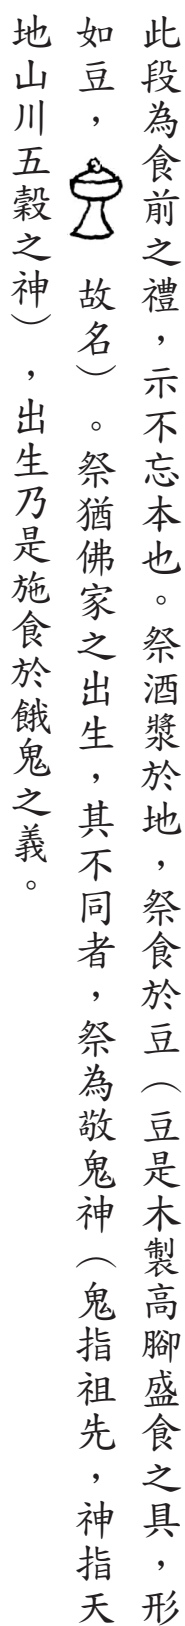 此段為食前之禮，示不忘本也。祭酒漿於地，祭食於豆（豆是木製高腳盛食之具，形
如豆，故名）。祭猶佛家之出生，其不同者，祭為敬鬼神（鬼指祖先，神指天
地山川五穀之神），出生乃是施食於餓鬼之義。